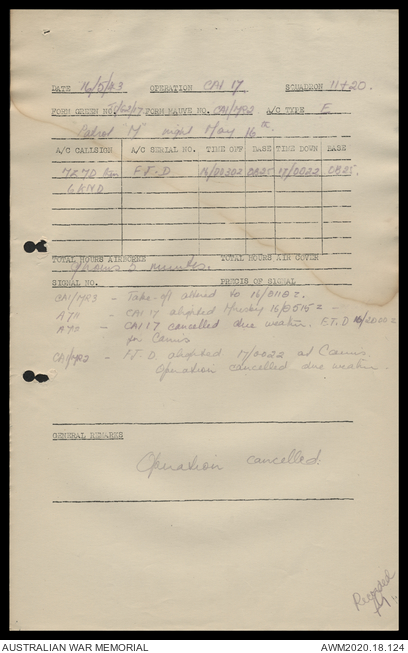 DATE 16/5/43 OPERATION CAI 17 SQUADRON 11+20.
FORM GREEN NO. FORM MAUVE NO. CAI/MR2 A/C TYPE E
17 night May 16th.
A/C CALLSIGN A/C SERIAL NO. TIME OFF BASE TIME DOWN BASE
7E7D F.T.D. 16/0030Z 17/0022
6KND
TOTAL HOURS AIRBORNE TOTAL HOURS AIR COVER
hours 5 minutes.
SIGNAL NO. PRECIS OF SIGNAL
CAI/MR3 - Take-off altered to 16/0118z.
A711 - CAI 17 alighted 16/0515z -
CAI 17 cancelled due weather. E.T.D 16/2000z
for Cairns
CAI/MR2 - F.T. D alighted 17/0022 at Cairns.
Operation cancelled due weather.
GENERAL REMARKS
Operation cancelled.
Recorded
AUSTRALIAN WAR MEMORIAL AWM2020.18.124